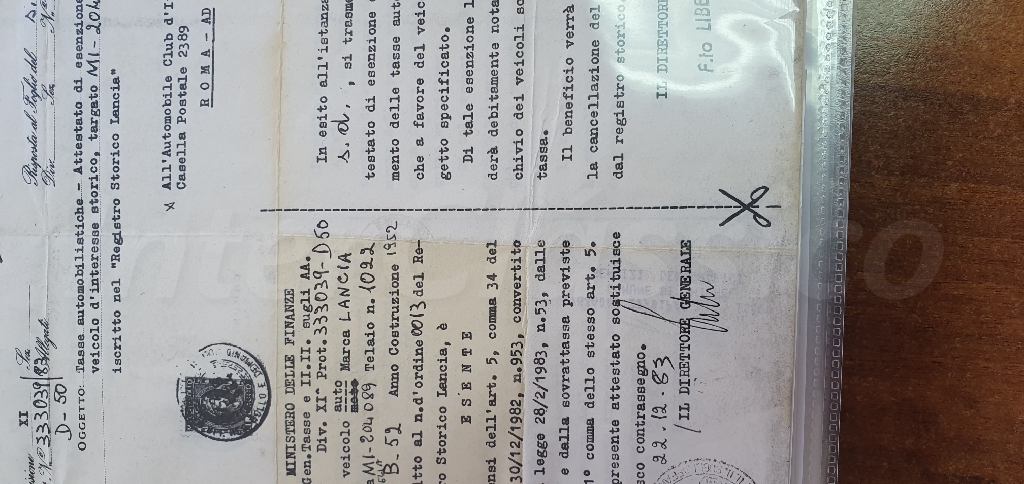 XI
N° 333039/83 Allegati
D-50
Risposta al Foglio del
Div. Sez. N°
OGGETTO: Tassa automobilistiche.- Attestato di esenzione
veicolo d'interesse storico, targato MI- 204
iscritto nel "Registro Storico Lancia"
x All'Automobile Club d'I
Casella Postale 2389
ROMA - AD
MINISTERO DELLE FINANZE
Gen.Tasse e II.II. sugli AA.
Div. XI^ Prot. 333039-D50
veicolo auto Marca LANCIA
MI-204089 Telaio n. 1022
B-52 Anno Costruzione 1952
itto al n.d'ordine 0013 del Re-
ro Storico Lancia, è
ESENTE
ensi dell'art. 5, comma 34 del
30/12/1982, n.953, convertito
legge 28/2/1983, n.53, dalle
e dalla sovrattassa previste
1° comma dello stesso art. 5.
presente attestato sostituisce
sco contrassegno.
22.12.83
IL DIRETTORE GENERALE
In esito all'istanza
s.d., , si trasm
testato di esenzione
mento delle tasse aut
che a favore del veic
getto specificato.
Di tale esenzione l
derà debitamente nota
chivio dei veicoli so
tassa.
Il beneficio verrà
la cancellazione del
dal registro storico.
IL DIRETTOR
F.to LIBE